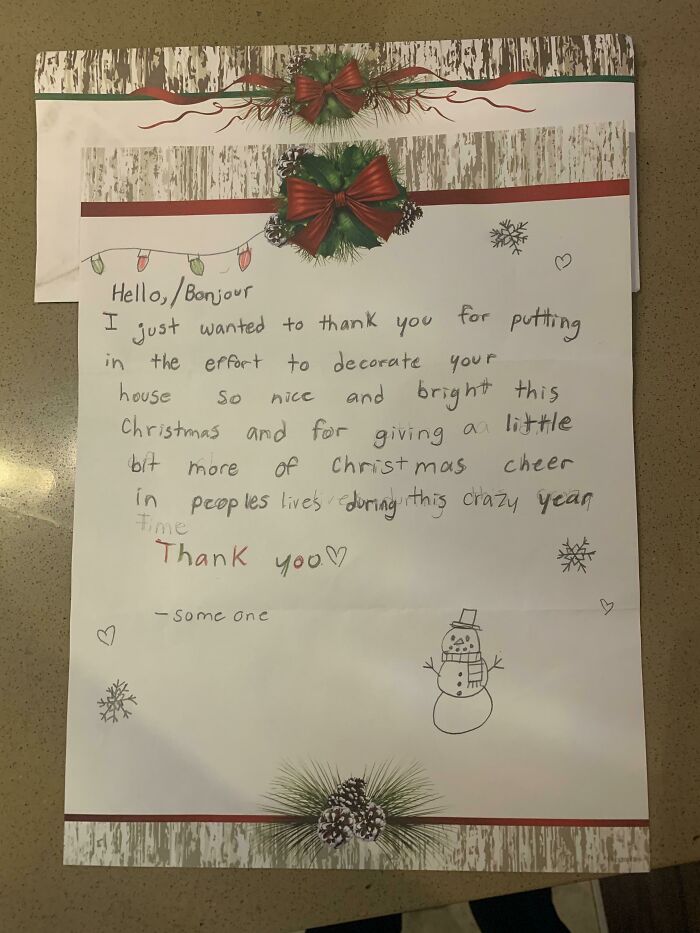 Hello,/Bonjour
I just wanted to thank you for putting
in the effort to decorate your
house so nice and bright this
Christmas and for giving a little
bit more of Christmas cheer
in peoples lives during this crazy year
Time
Thank you♡
-some one